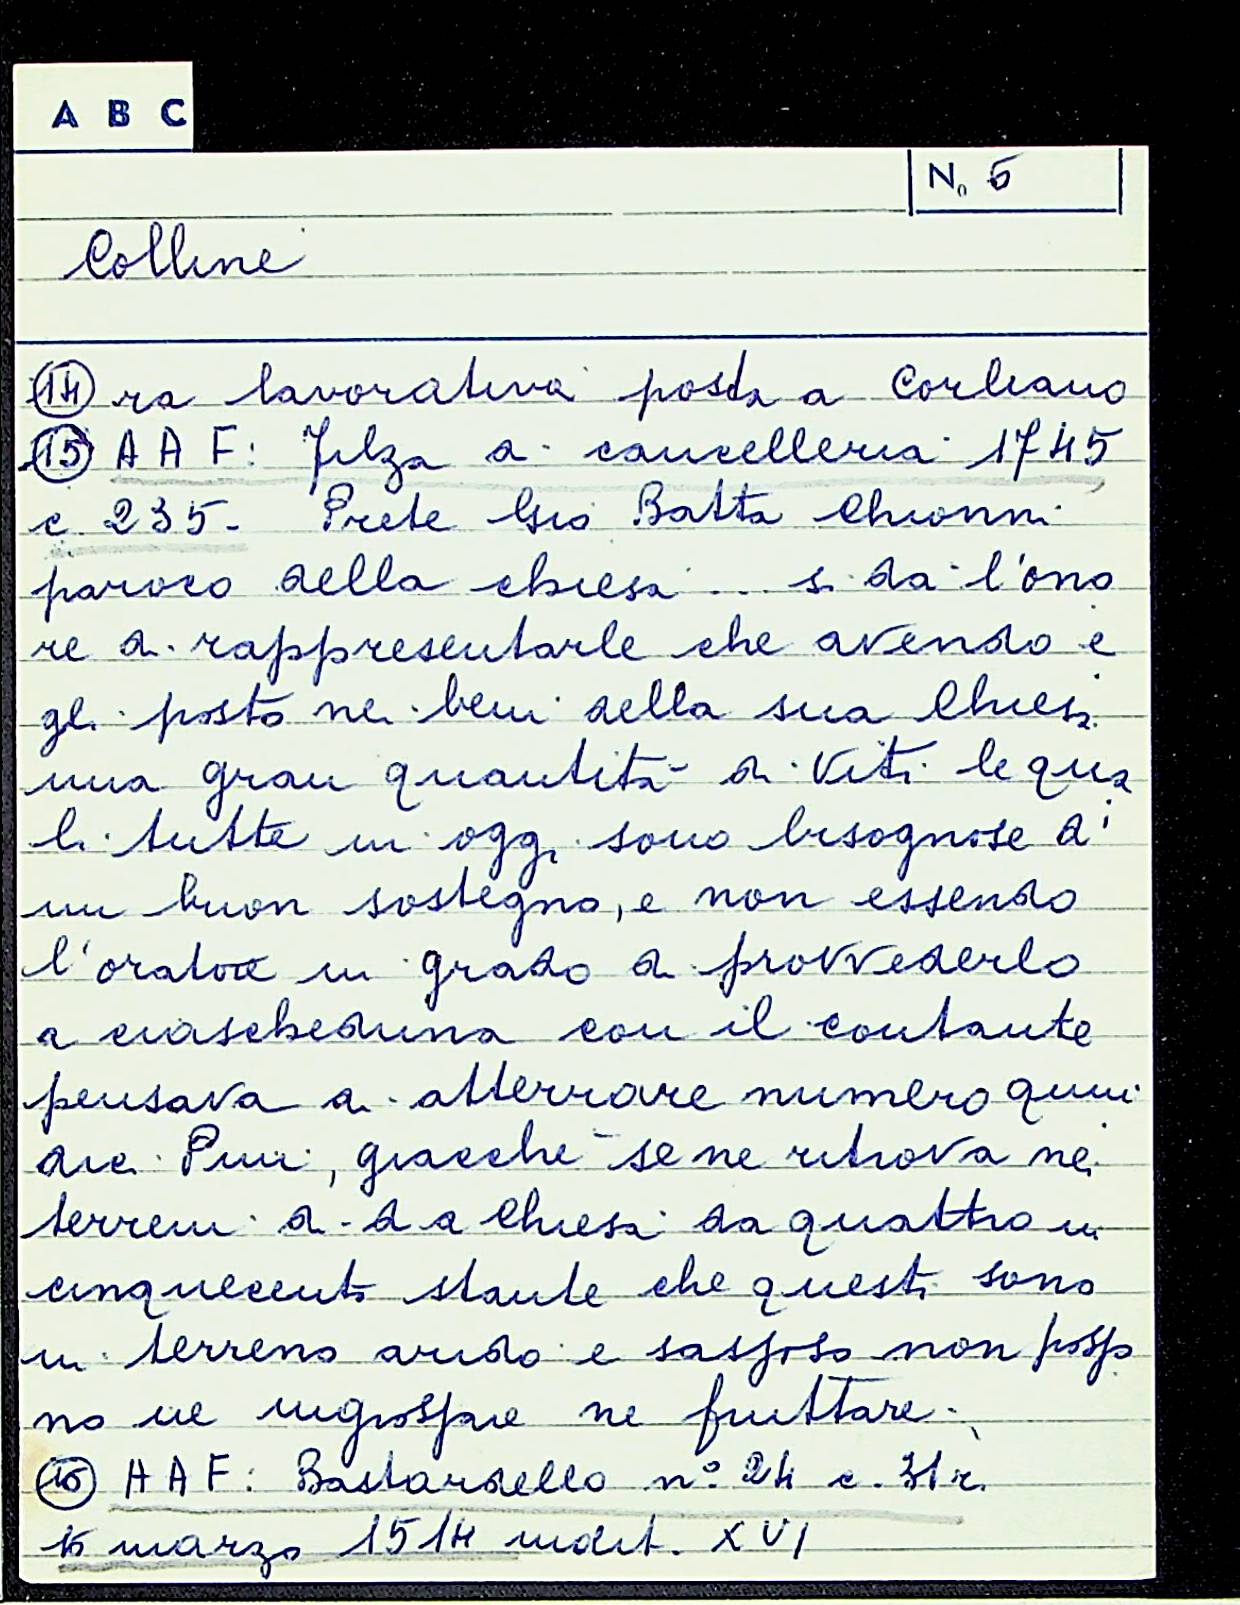 A B C
N. 5
Colline
14 ra lavorativa posta a Corliano
15 A A F: Filza di cancelleria 1745
c. 235. Prete Gio Batta Chionni
paroco della chiesa ... si da l'ono
re di rappresentarle che avendo e
gli posto nei beni della sua Chiesa
una gran quantità di Viti le qua
li tutte in oggi sono bisognose di
un buon sostegno, e non essendo
l'oratore in grado di provvederlo
a ciascheduna con il contante
pensava di atterrare numero quin
dici Pini, giacchè se ne ritrova nei
terreni di da Chiesa da quattro in
cinquecento stante che questi sono
in terreno arido e sassoso non posso
no ne ingrossare ne fruttare.
16 A A F: Bastardello n° 24 c. 31r.
15 marzo 1514 indit. XVI